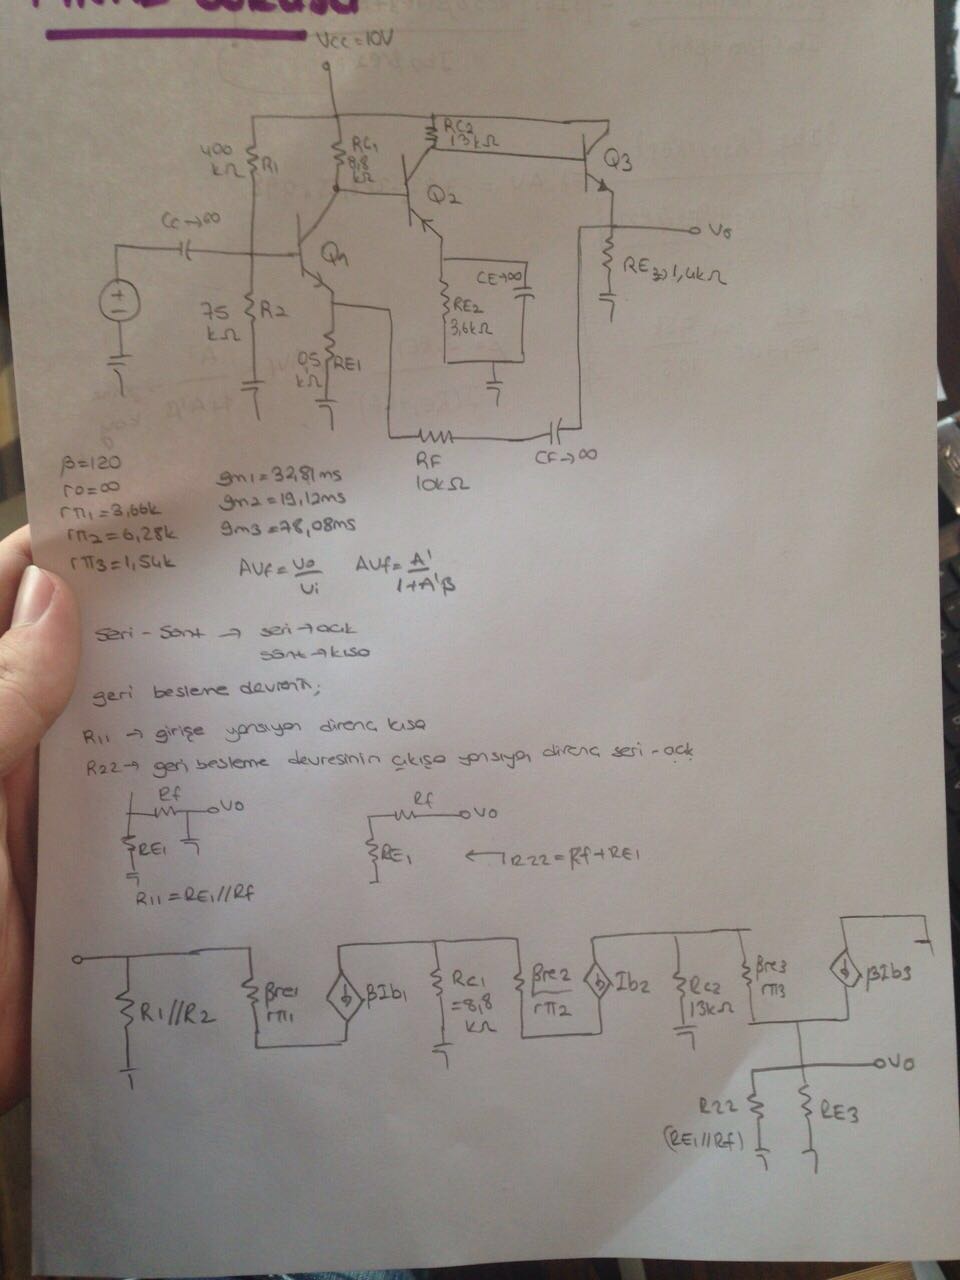 Vcc=10V
400 kΩ R1
RC1 8,8 kΩ
RC2 13kΩ
Q3
Q2
Cc→∞
Q1
Vo
CE→∞
RE3→1,4kΩ
75 kΩ R2
RE2 3,6kΩ
05 kΩ RE1
RF 10kΩ
CF→∞
β=120
ro=∞
rπ1=3,66k
rπ2=6,28k
rπ3=1,54k
gm1=32,81ms
gm2=19,12ms
gm3=78,08ms
AVf=Vo/Vi AVf=A'/1+A'β
Seri-Şönt → seri→açık
şönt→kısa
geri besleme devresi;
R11 → girişe yansıyan direnç kısa
R22→ geri besleme devresinin çıkışa yansıyan direnç seri-açık
Rf Vo
RE1
R11=RE1//Rf
Rf Vo
RE1 ← R22=Rf+RE1
R1//R2
βre1 rπ1
βIb1
RC1 =8,8 kΩ
βre2 rπ2
Ib2
RC2 13kΩ
βre3 rπ3
βIb3
Vo
R22 (RE1//Rf)
RE3